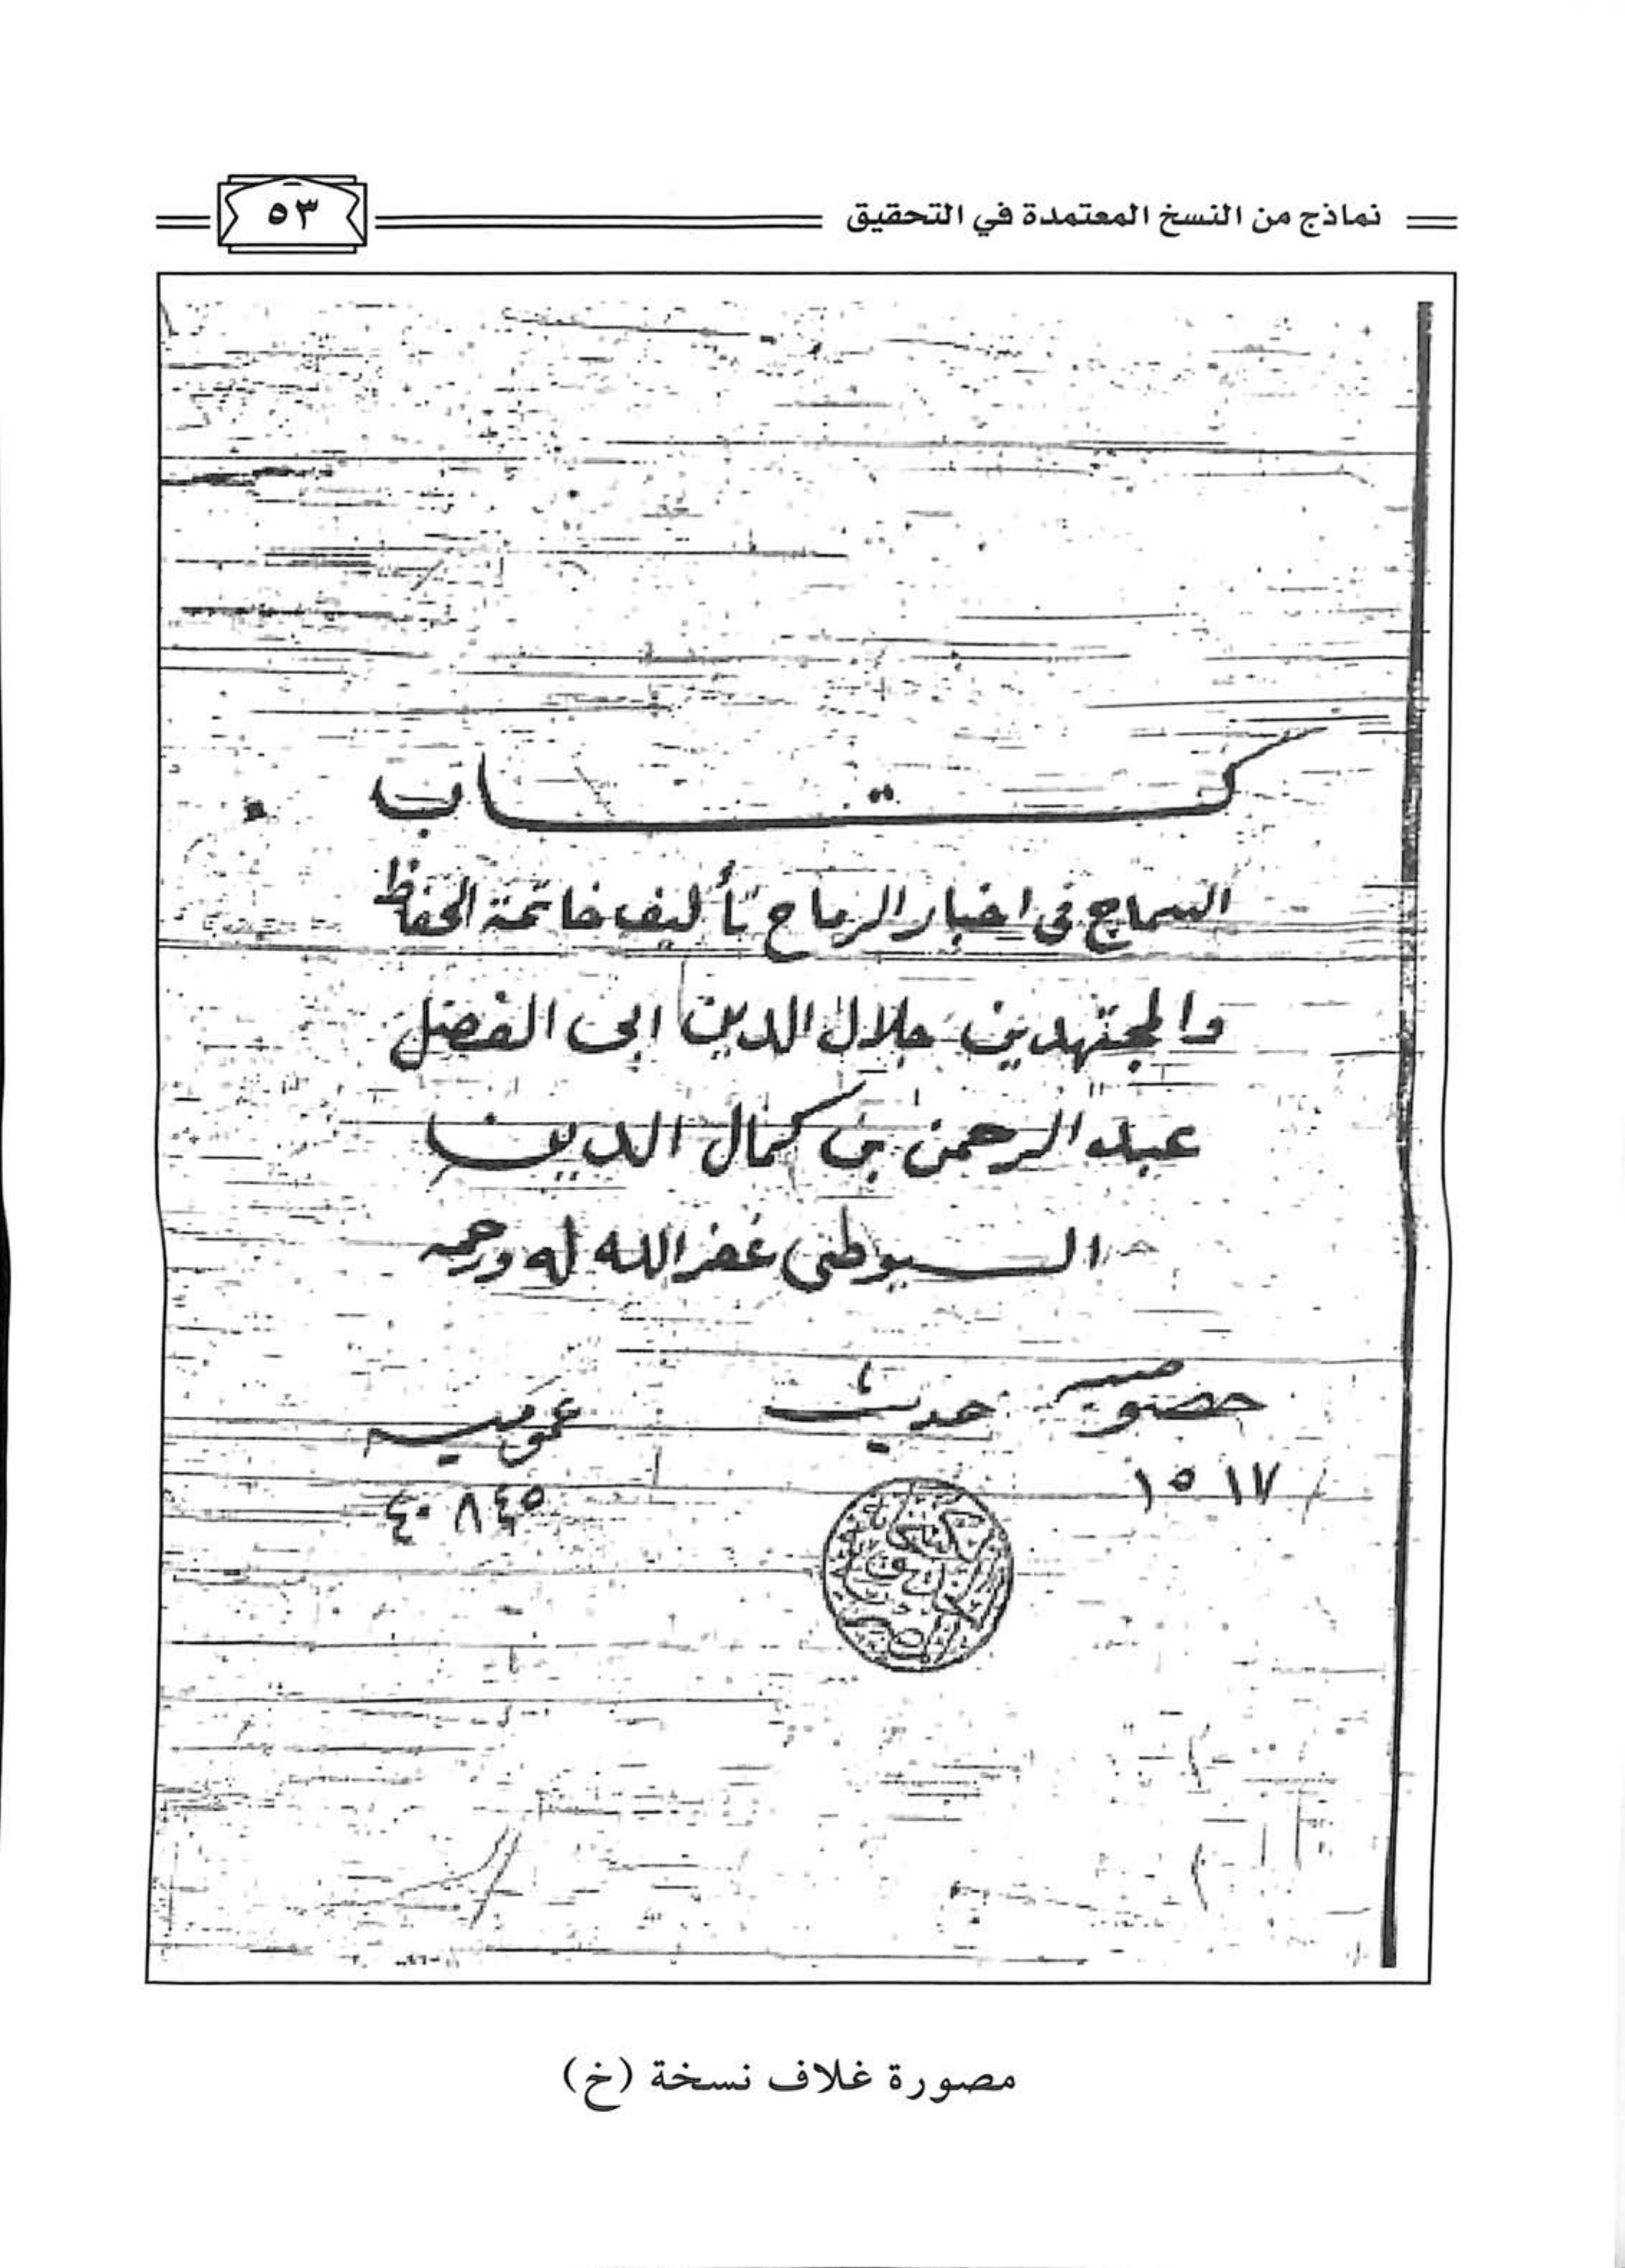 نماذج من النسخ المعتمدة في التحقيق
٥٣
كتاب
السماح في اخبار الرماح تأليف خاتمة الحفاظ
والمجتهدين جلال الدين ابى الفضل
عبد الرحمن بن كمال الدين
السيوطى غفر الله له ورحمه
خصوصيه حديث عموميه
١٥١٧ ٤٠٨٤٥
مصورة غلاف نسخة (خ)